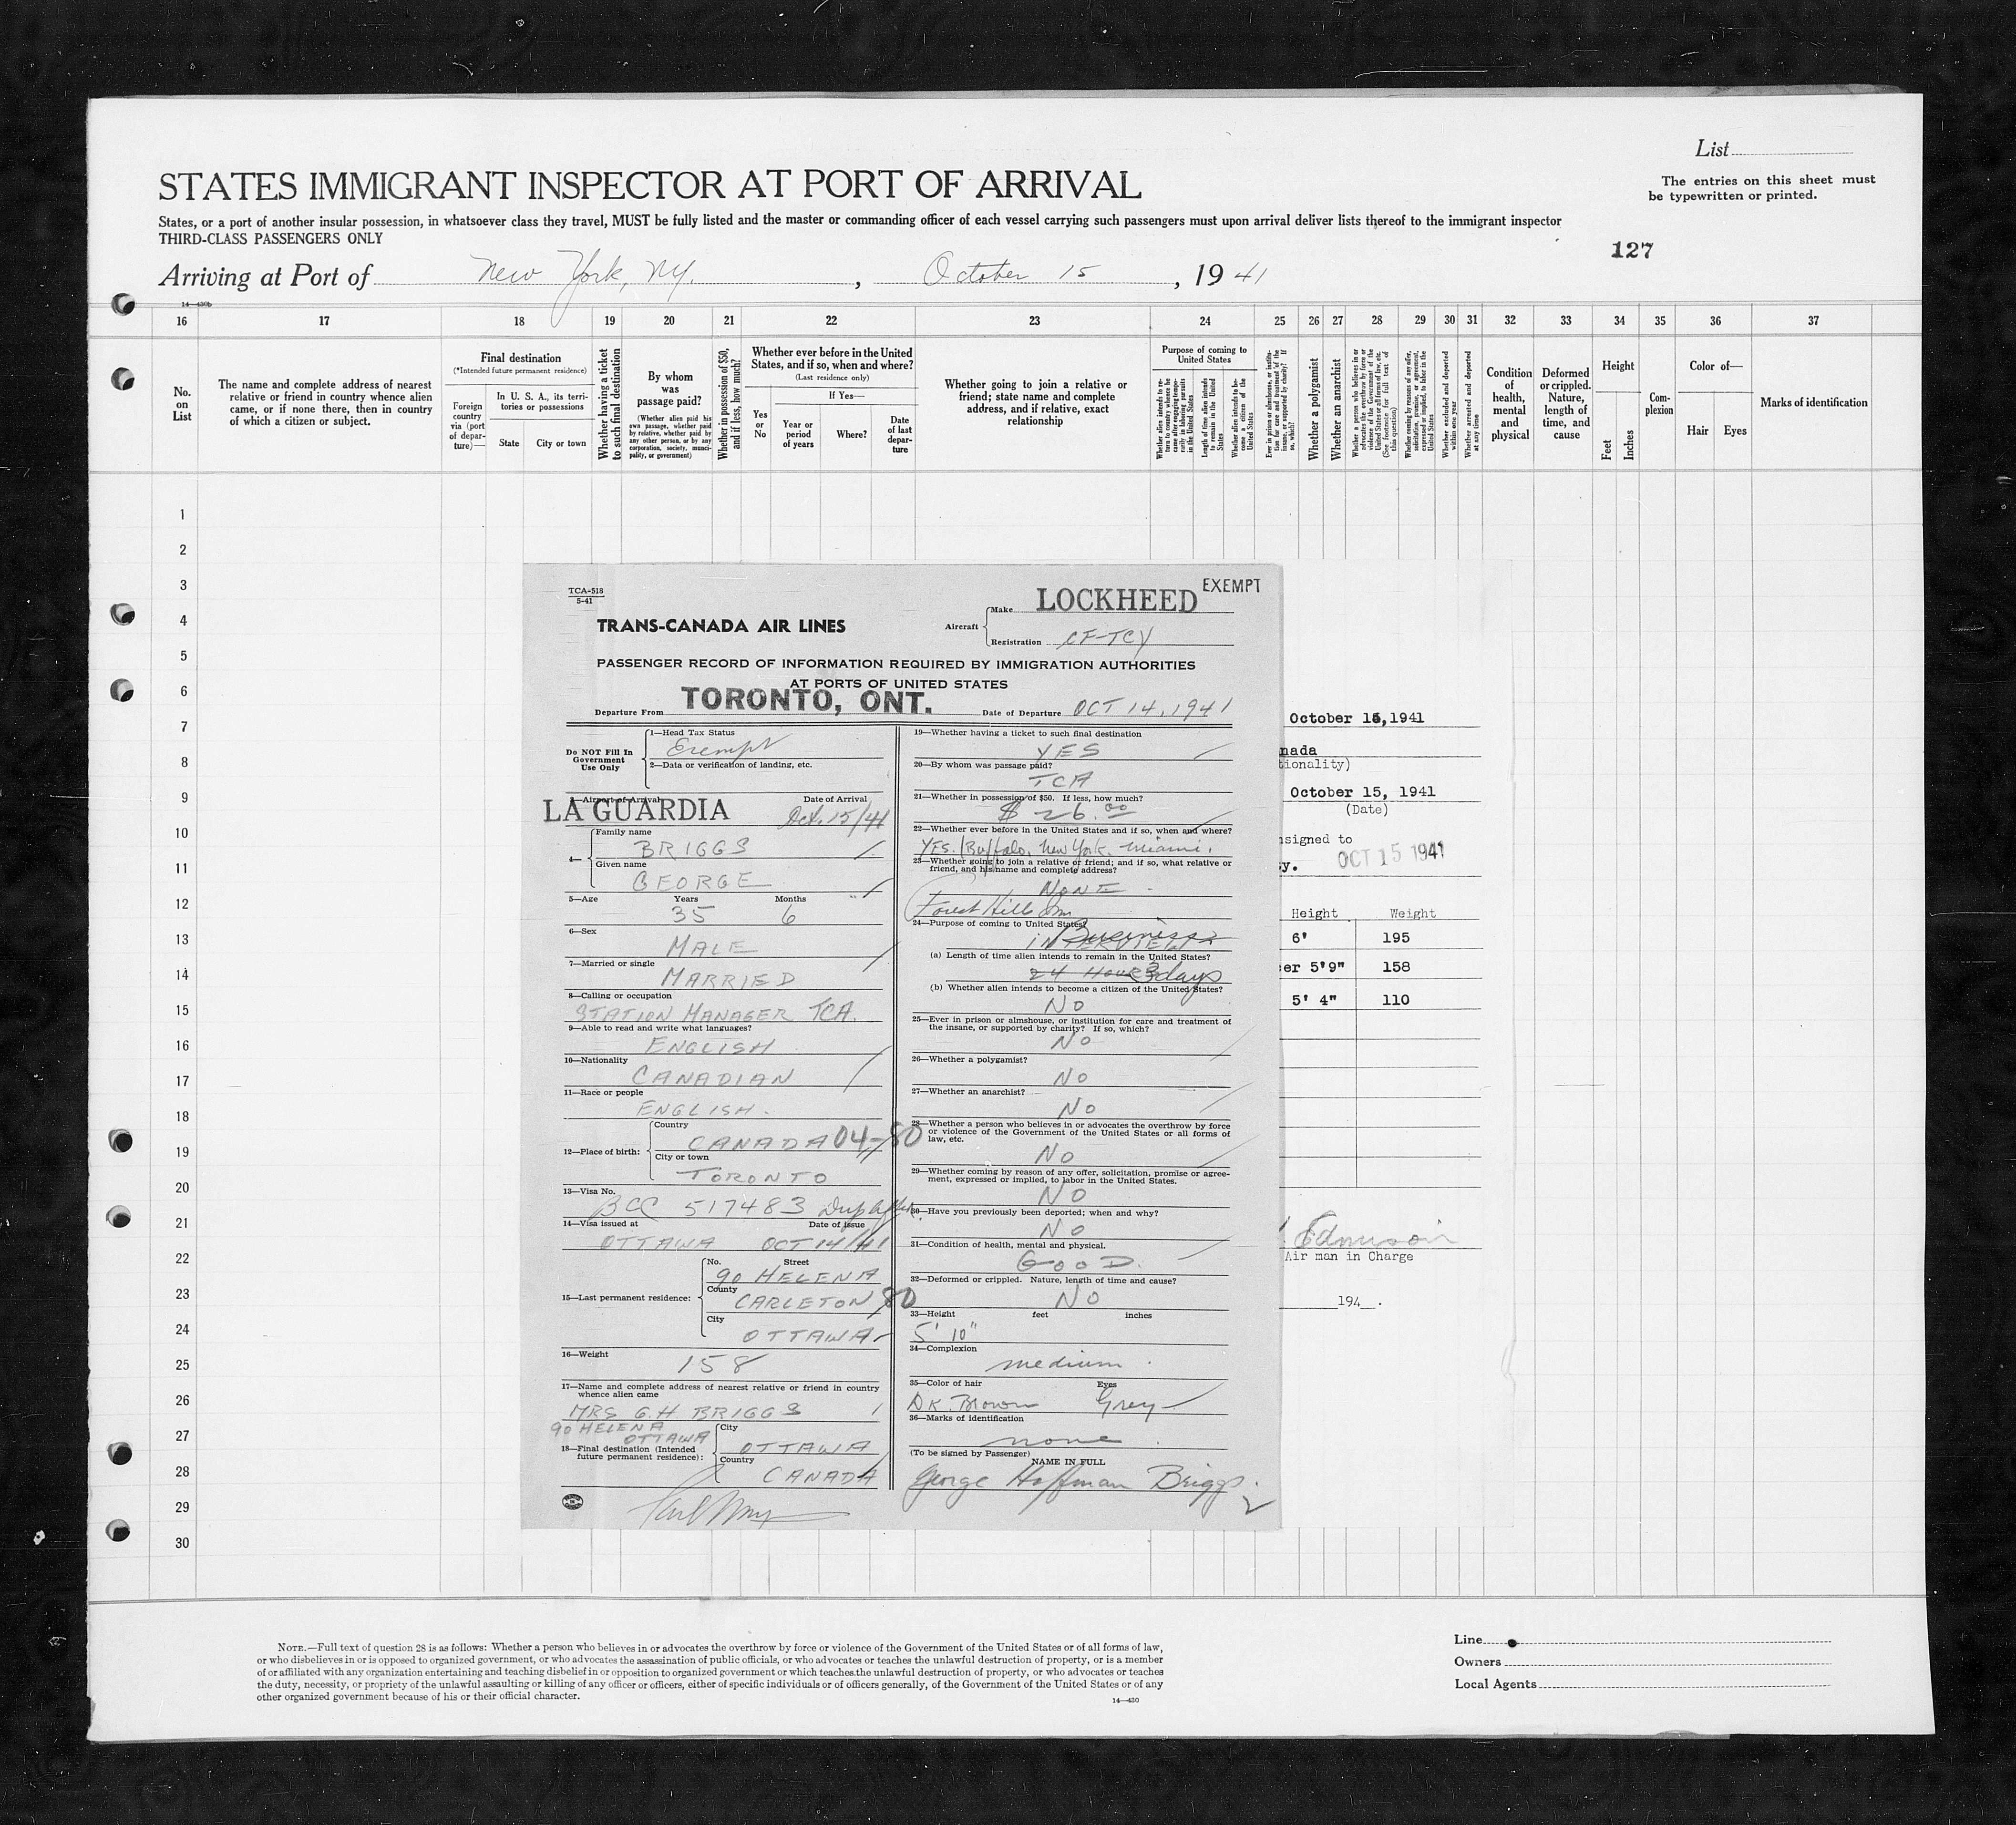 List
STATES IMMIGRANT INSPECTOR AT PORT OF ARRIVAL
The entries on this sheet must
be typewritten or printed.
States, or a port of another insular possession, in whatsoever class they travel, MUST be fully listed and the master or commanding officer of each vessel carrying such passengers must upon arrival deliver lists thereof to the immigrant inspector
THIRD-CLASS PASSENGERS ONLY
127
Arriving at Port of New York, NY. , October 15 , 19 41
14—430b
16 17 18 19 20 21 22 23 24 25 26 27 28 29 30 31 32 33 34 35 36 37
No.
on
List
The name and complete address of nearest
relative or friend in country whence alien
came, or if none there, then in country
of which a citizen or subject.
Final destination
(*Intended future permanent residence)
Foreign
country
via (port
of depar-
ture)—
In U. S. A., its terri-
tories or possessions
State City or town
Whether having a ticket
to such final destination
By whom
was
passage paid?
(Whether alien paid his
own passage, whether paid
by relative, whether paid by
any other person, or by any
corporation, society, munici-
pality, or government)
Whether in possession of $50,
and if less, how much?
Whether ever before in the United
States, and if so, when and where?
(Last residence only)
Yes
or
No
If Yes—
Year or
period
of years
Where?
Date
of last
depar-
ture
Whether going to join a relative or
friend; state name and complete
address, and if relative, exact
relationship
Purpose of coming to
United States
Whether alien intends to re-
turn to country whence he
came after engaging tempo-
rarily in laboring pursuits
in the United States
Length of time alien intends
to remain in the United
States
Whether alien intends to be-
come a citizen of the
United States
Ever in prison or almshouse, or institu-
tion for care and treatment of the
insane, or supported by charity? If
so, which?
Whether a polygamist
Whether an anarchist
Whether a person who believes in or
advocates the overthrow by force or
violence of the Government of the
United States or all forms of law, etc.
(See footnote for full text of
this question)
Whether coming by reasons of any offer,
solicitation, promise, or agreement,
expressed or implied, to labor in the
United States
Whether excluded and deported
within one year
Whether arrested and deported
at any time
Condition
of
health,
mental
and
physical
Deformed
or crippled.
Nature,
length of
time, and
cause
Height
Feet
Inches
Com-
plexion
Color of—
Hair Eyes
Marks of identification
1
2
3
4
5
6
7
8
9
10
11
12
13
14
15
16
17
18
19
20
21
22
23
24
25
26
27
28
29
30
TCA-518
5-41
EXEMPT
TRANS-CANADA AIR LINES
Aircraft
Make LOCKHEED
Registration CF-TCY
PASSENGER RECORD OF INFORMATION REQUIRED BY IMMIGRATION AUTHORITIES
AT PORTS OF UNITED STATES
Departure From TORONTO, ONT. Date of Departure OCT 14, 1941
Do NOT Fill In
Government
Use Only
1—Head Tax Status
Exempt
2—Data or verification of landing, etc.
3—Airport of Arrival Date of Arrival
LA GUARDIA Oct. 15/41
4—
Family name
BRIGGS
Given name
GEORGE
5—Age Years Months
35 6
6—Sex
MALE
7—Married or single
MARRIED
8—Calling or occupation
STATION MANAGER TCA.
9—Able to read and write what languages?
ENGLISH
10—Nationality
CANADIAN
11—Race or people
ENGLISH.
12—Place of birth:
Country
CANADA 04-80
City or town
TORONTO
13—Visa No.
BCC 517483
14—Visa issued at Date of Issue
OTTAWA OCT 14/41
15—Last permanent residence:
No. Street
90 HELENA
County
CARLETON 80
City
OTTAWA
16—Weight
158
17—Name and complete address of nearest relative or friend in country
whence alien came
MRS G.H BRIGGS
90 HELENA
OTTAWA
18—Final destination (Intended
future permanent residence):
City
OTTAWA
Country
CANADA
19—Whether having a ticket to such final destination
YES
20—By whom was passage paid?
TCA
21—Whether in possession of $50. If less, how much?
$ 26.00
22—Whether ever before in the United States and if so, when and where?
YES. Buffalo, New York, Miami.
23—Whether going to join a relative or friend; and if so, what relative or
friend, and his name and complete address?
NONE
Forest Hills Inn
24—Purpose of coming to United States?
INTERVIEW Business
(a) Length of time alien intends to remain in the United States?
24 HOURS 3 days
(b) Whether alien intends to become a citizen of the United States?
NO
25—Ever in prison or almshouse, or institution for care and treatment of
the insane, or supported by charity? If so, which?
NO
26—Whether a polygamist?
NO
27—Whether an anarchist?
NO
28—Whether a person who believes in or advocates the overthrow by force
or violence of the Government of the United States or all forms of
law, etc.
NO
29—Whether coming by reason of any offer, solicitation, promise or agree-
ment, expressed or implied, to labor in the United States.
NO
30—Have you previously been deported; when and why?
NO
31—Condition of health, mental and physical.
GOOD.
32—Deformed or crippled. Nature, length of time and cause?
NO
33—Height feet inches
5' 10"
34—Complexion
medium.
35—Color of hair Eyes
DK. Brown Grey
36—Marks of identification
none.
(To be signed by Passenger)
NAME IN FULL
George Hoffman Briggs.
October 15,1941
nada
tionality)
October 15, 1941
(Date)
signed to
y. OCT 15 1941
Height Weight
6' 195
er 5'9" 158
5' 4" 110
Edmison
Air man in Charge
194 .
NOTE.—Full text of question 28 is as follows: Whether a person who believes in or advocates the overthrow by force or violence of the Government of the United States or of all forms of law,
or who disbelieves in or is opposed to organized government, or who advocates the assassination of public officials, or who advocates or teaches the unlawful destruction of property, or is a member
of or affiliated with any organization entertaining and teaching disbelief in or opposition to organized government or which teaches the unlawful destruction of property, or who advocates or teaches
the duty, necessity, or propriety of the unlawful assaulting or killing of any officer or officers, either of specific individuals or of officers generally, of the Government of the United States or of any
other organized government because of his or their official character.
14—430
Line
Owners
Local Agents